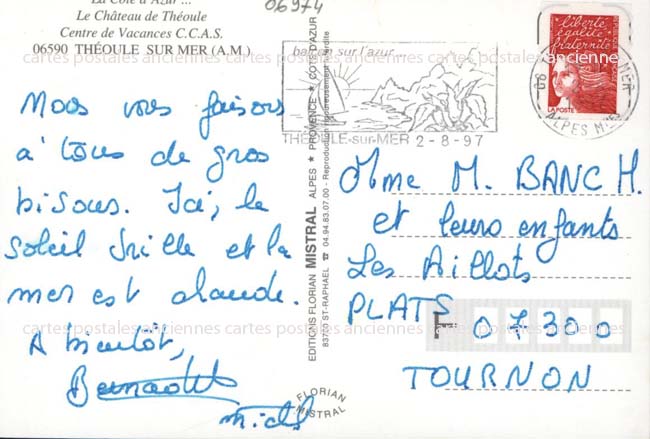 06974
La Côte d'Azur ...
Le Château de Théoule
Centre de Vacances C.C.A.S.
06590 THÉOULE SUR MER (A.M.)
Nous vous faisons
à tous de gros
bisous. Ici, le
soleil brille et la
mer est chaude.
A bientôt,
Bernadette
Michel
EDITIONS FLORIAN MISTRAL ALPES ★ PROVENCE ★ COTE D'AZUR
83700 ST-RAPHAEL ☎ 04.94.83.07.00 - Reproduction rigoureusement interdite
FLORIAN
MISTRAL
balcon sur l'azur...
THÉOULE-sur-MER 2-8-97
liberté
égalité
fraternité
LA POSTE
06
MER
ALPES Mmes
Mme M. BANC H.
et leurs enfants
Les Aillots
PLATS
F- 07300
TOURNON
cartes postales anciennes cartes postales anciennes cartes postales anciennes
cartes postales anciennes cartes postales anciennes cartes postales anciennes